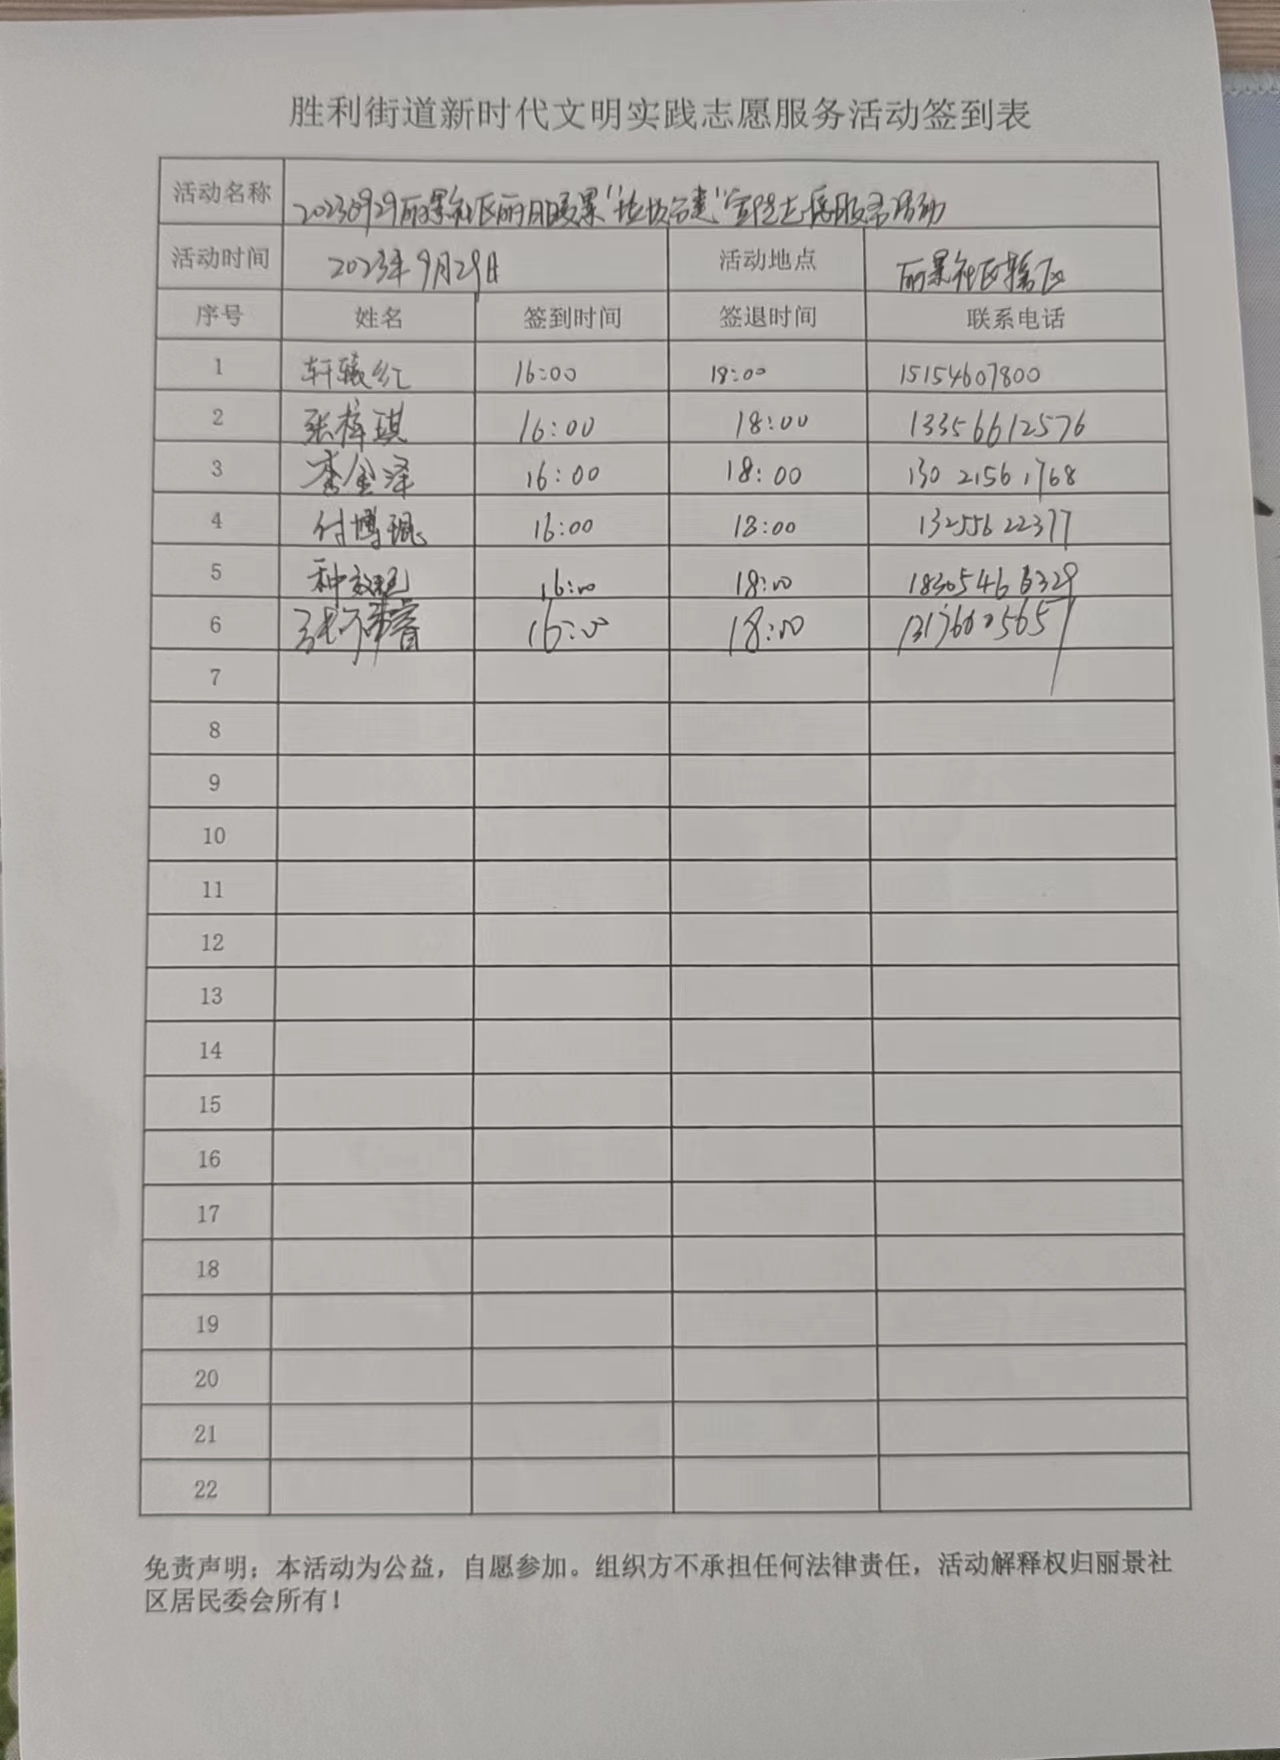 胜利街道新时代文明实践志愿服务活动签到表
活动名称 20230929丽景社区丽日暖景"垃圾分类"宣传志愿服务活动
活动时间 2023年9月29日 活动地点 丽景社区辖区
序号 姓名 签到时间 签退时间 联系电话
1 轩辕红 16:00 18:00 15154607800
2 张梓琪 16:00 18:00 13356612576
3 李金泽 16:00 18:00 13021561768
4 付博琨 16:00 18:00 13255622377
5 16:00 18:00 18305466329
6 16:00 18:00
7
8
9
10
11
12
13
14
15
16
17
18
19
20
21
22
免责声明：本活动为公益，自愿参加。组织方不承担任何法律责任，活动解释权归丽景社
区居民委会所有！